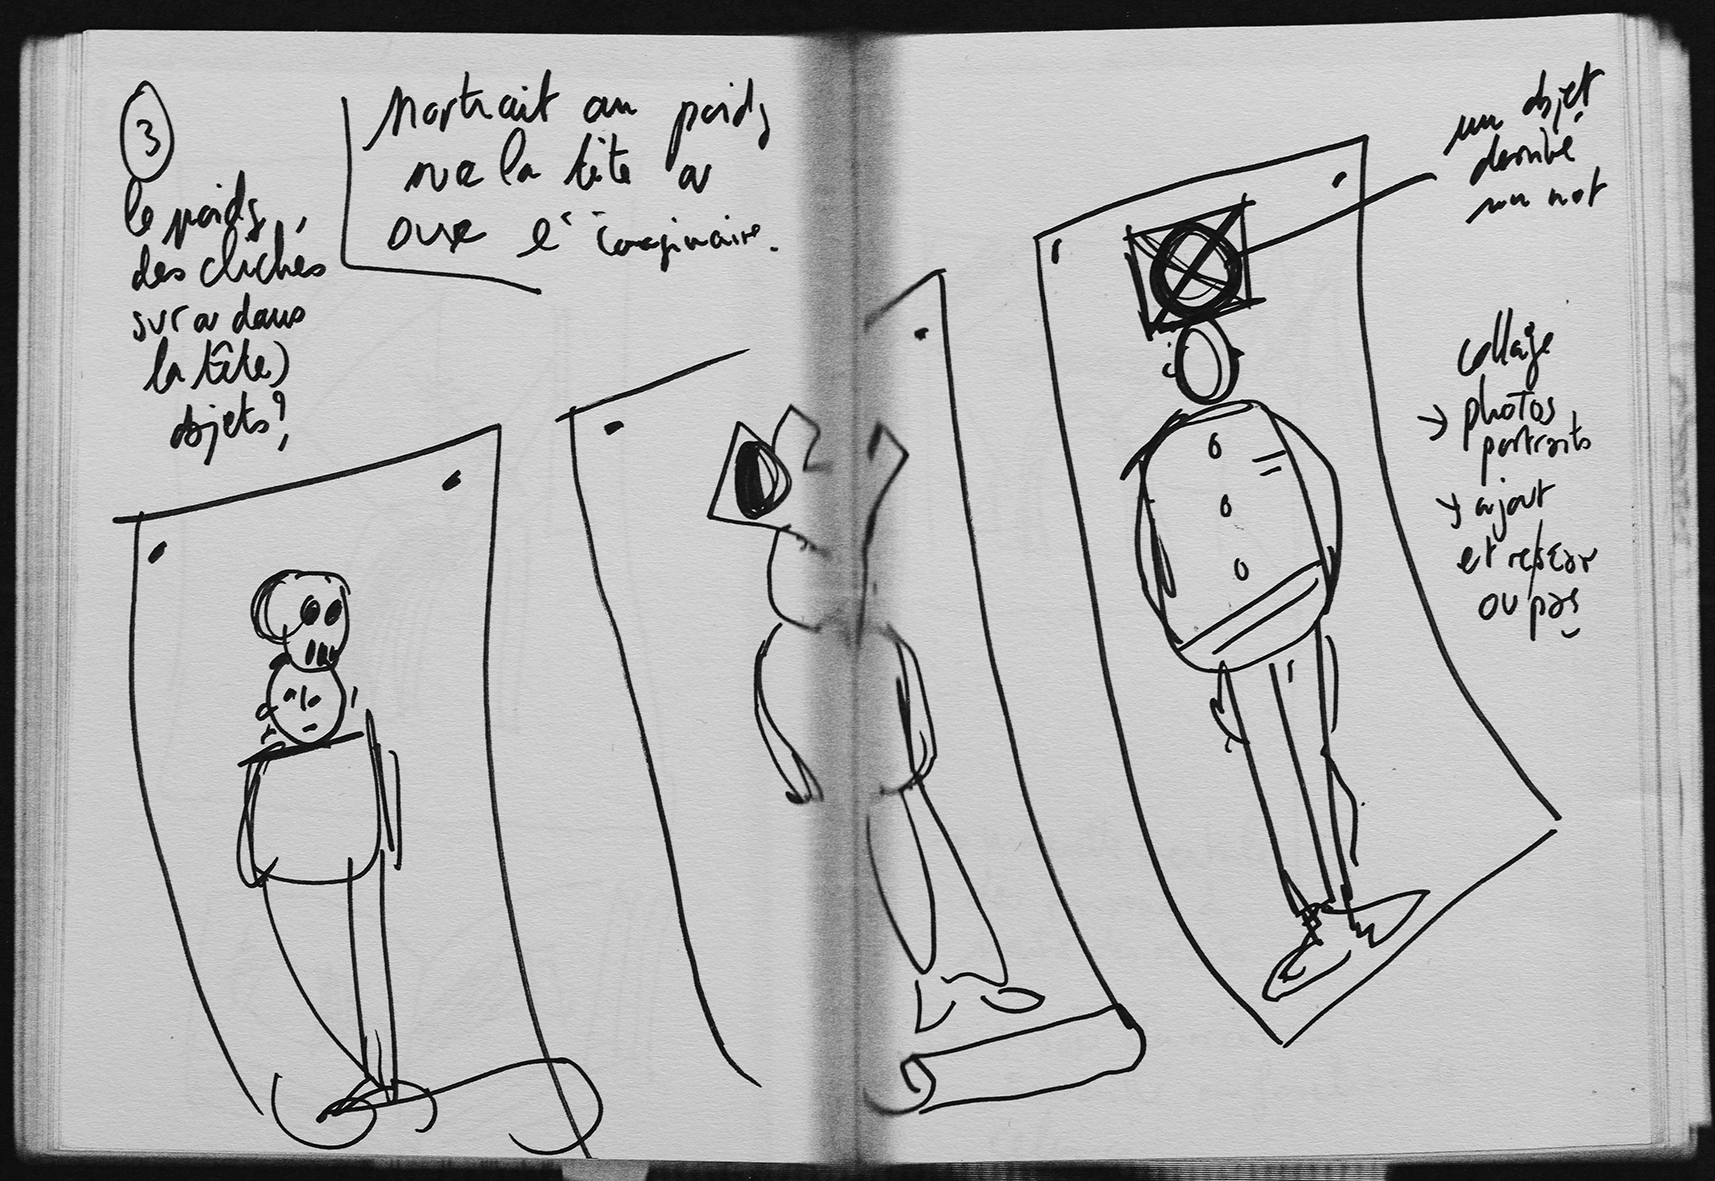 3
le poids
des clichés
sur ou dans
la tête)
objets?
portrait au poids
sur la tête ou
avec l'imaginaire.
un objet
derrière
un mot
collage
→ photos
portraits
→ ajout
et
ou pas